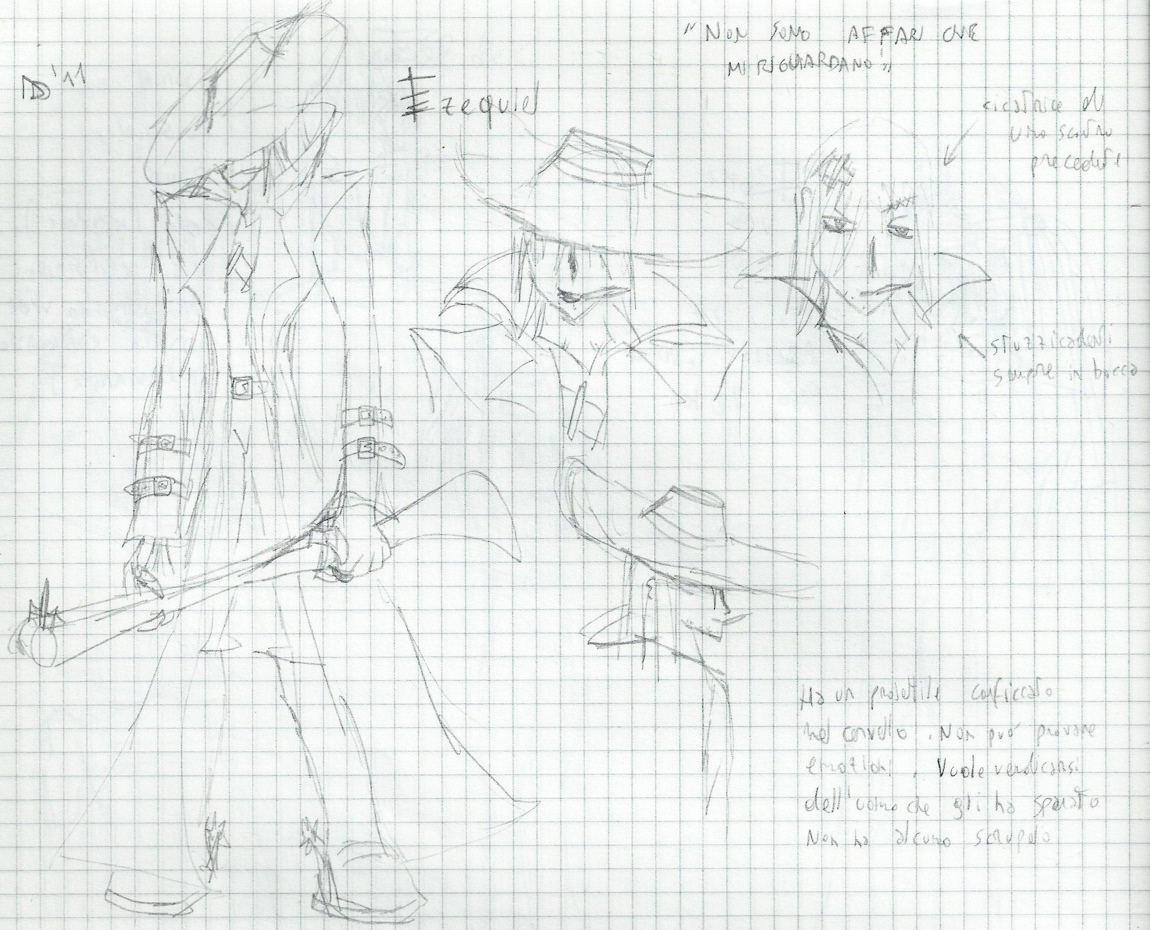 "NON SONO AFFARI CHE
MI RIGUARDANO"
DD'11
Ezequiel
cicatrice di
uno scontro
precedente
stuzzicadenti
sempre in bocca
Ha un proiettile conficcato
nel cervello. Non può provare
emozioni. Vuole vendicarsi
dell'uomo che gli ha sparato
Non ha alcuno scrupolo